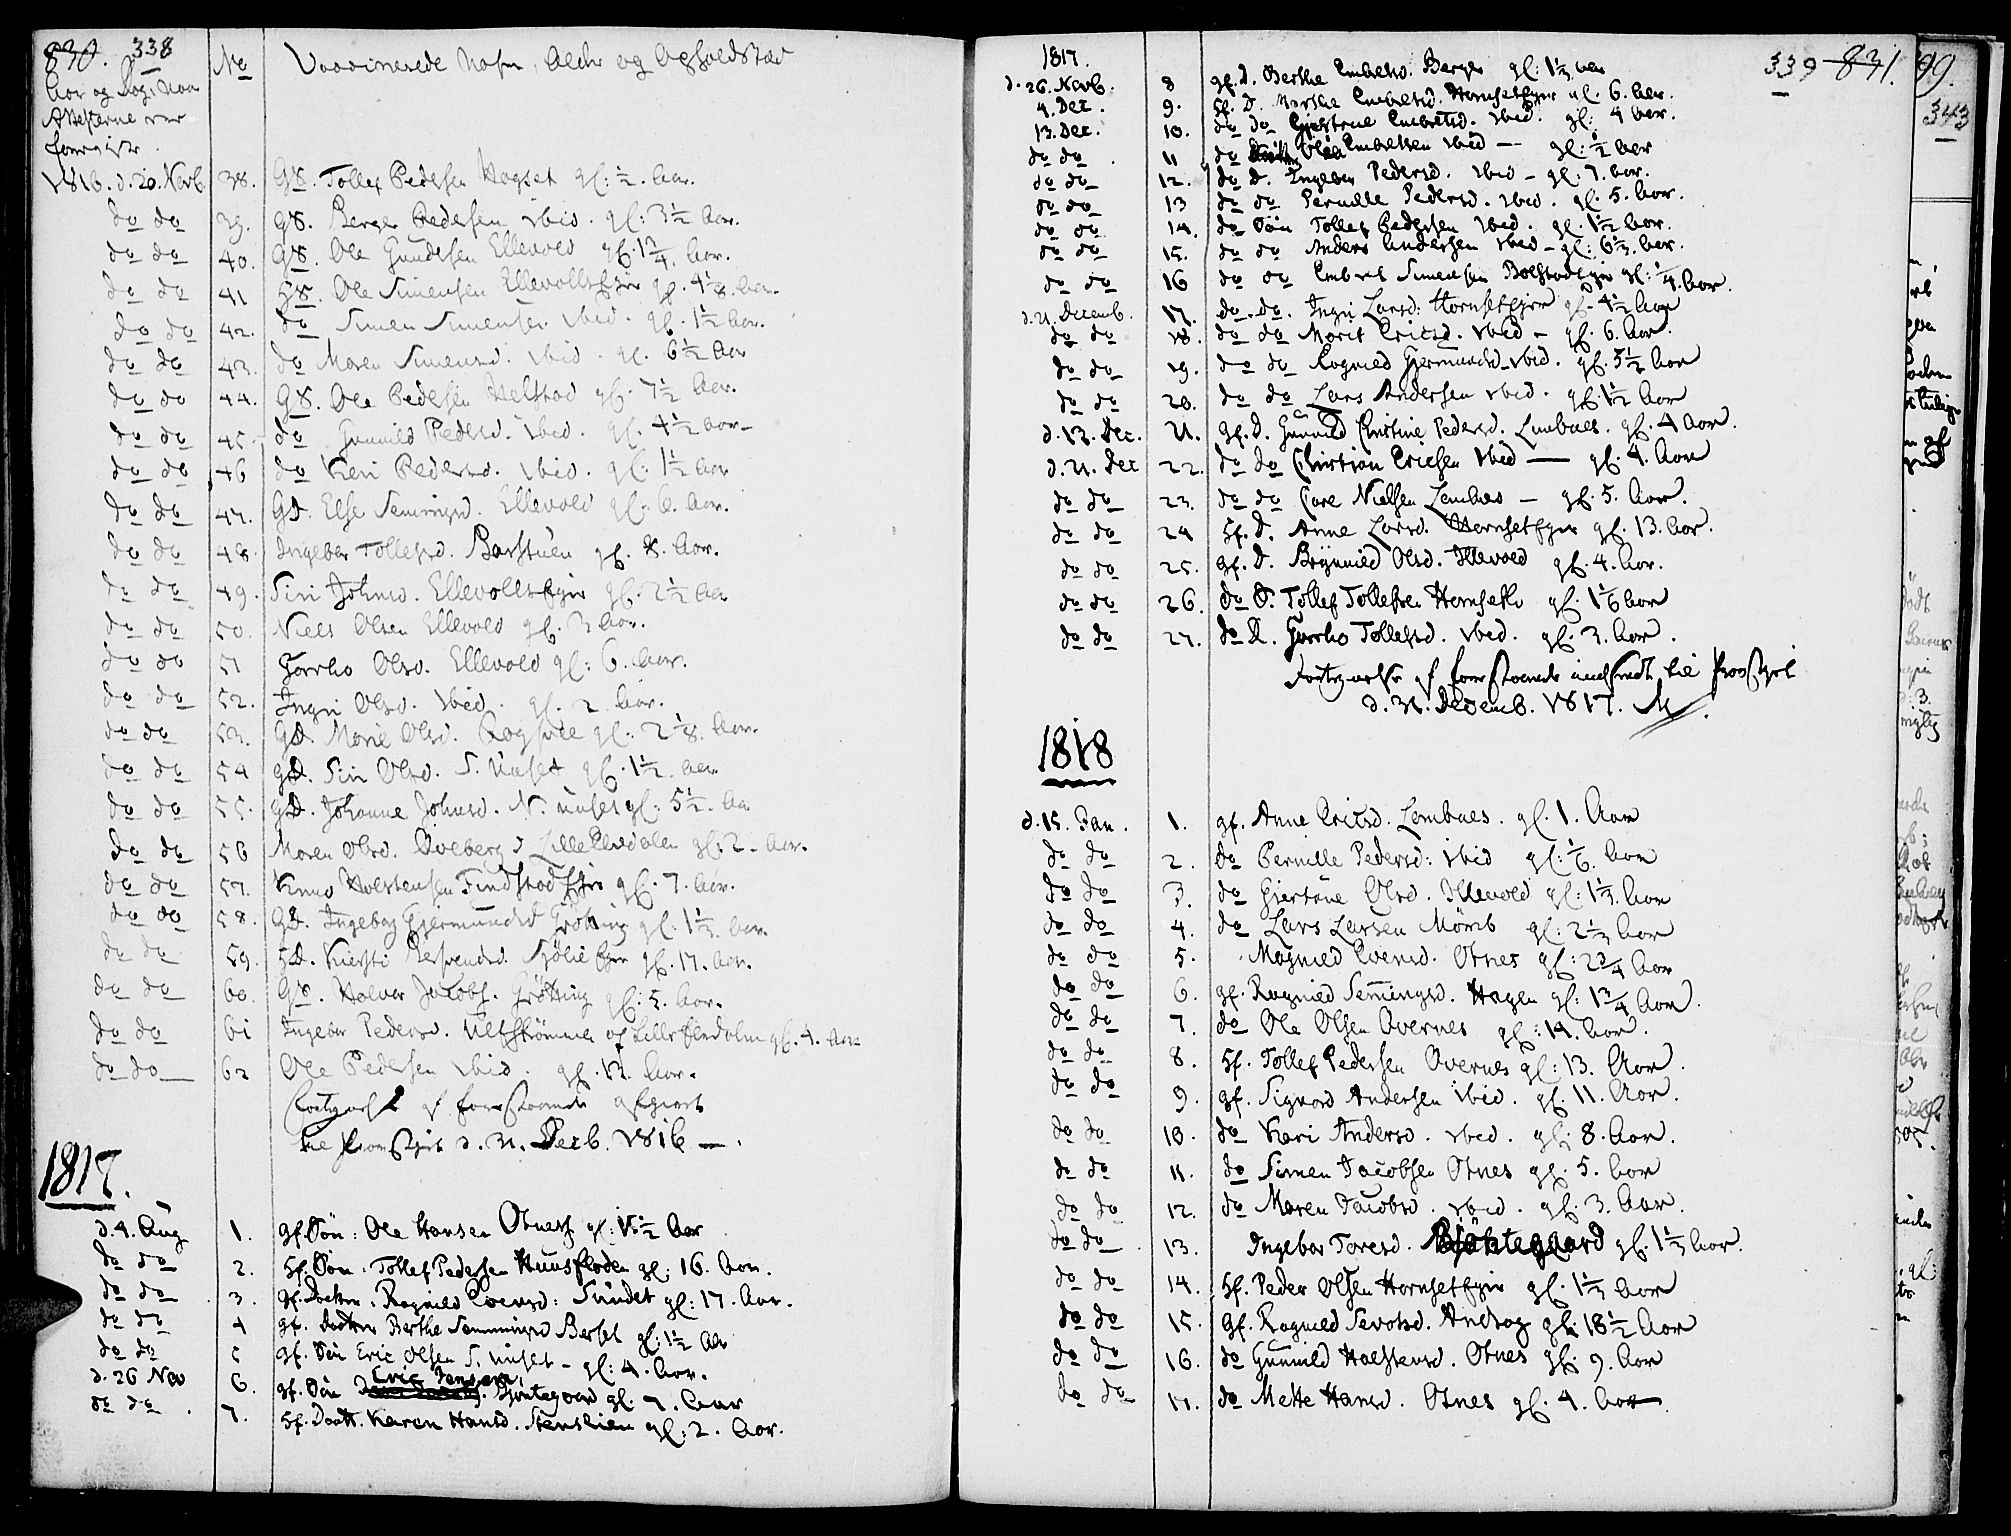 830. 338
Aar og Dag, naar
Attesterne ere
foreviste.
No
Vaccinerede Nafn, Alder og Opholdsted
1816. d. 20. Novb. 38. GS. Tollef Pedersen Hogset gl: ½. Aar.
do do 39. GS. Berger Pedersen ibid. gl: 3½ Aar.
do do 40. GS. Ole Gundesen Ellevold gl. 1¾. Aar.
do do 41 HS. Ole Simensen Ellevollsejer gl. 4⅛. Aar.
do do 42. do Simen Simensen ibid. gl. 1½ Aar.
do do 43. do Maren Simensd. ibid. gl. 6½ Aar
do do 44. GS. Ole Pedersen Helstad gl. 7½ Aar.
do do 45. do Gunnild Pedersd. ibid. gl. 4½ Aar
do do 46 do Kari Pedersd. ibid. gl. 1½ Aar
do do 47. GD. Else Semingsd. Ellevold gl. 6. Aar.
do do 48. Ingebor Tollefsd. Barstuen gl. 8. Aar.
do do 49. Siri Johnsd. Ellevollsejer gl. 2½ Aar
do do 50. Niels Olsen Ellevold gl. 3 Aar.
do do 51 Gorrho Olsd. Ellevold gl: 6. Aar.
do do 52. Ingri Olsd. ibid. gl. 2 Aar.
do do 53. GD. Marie Olsd. gl: 2⅛. Aar.
do do 54 GD. Siri Olsd. S. Unset gl. 1½ Aar
do do 55. GD. Johanne Johnsd. N. Unset gl: 5½. Aar
do do 56 Maren Olsd. Overberg i LilleElvedalen gl: 2. Aar.
do do 57. Holstensen Findstad Ejer gl. 7. Aar.
do do 58. GD. Ingebor Gjermundsd Grötting gl. 1⅓. Aar.
do do 59. HD. Kiersti Sjölie Ejer gl. 17. Aar.
do do 60. GS. Halvor Jacobs. Grötting gl. 5. Aar.
do do 61 Ingebor Pedersd. Ulfströmmen af Lille Elvdalen gl. 4. Aar
do do 62 Ole Pedersen ibid. gl. 12. Aar.
Fortegnelse af forestaaende afgivet
til Provstiet d. 31. Decb. 1816 —.
1817.
d. 4. Aug 1. gf. Sön: Ole Hansen Otnes gl: 15½ Aar
do do 2. Hf. Sön. Tollef Pedersen Huusfloden gl: 16. Aar.
do do 3. gf. Datter. Ragnild Evensd: Sundet gl: 17. Aar.
do do 4 gf. Datter Berthe Semmingsd Berset gl: 1½ Aar
do do 5 gf. Sön Eric Olsen S. Unset — gl: 4. Aar.
d. 26 Nov 6. gf. Sön Eric Jensen, Bjontegaard gl. 7. Aar
do do. 7. Hf. Datt. Karen Hansd. Stenslien gl: 2. Aar.
339 831.
1817.
d. 26. Novb. 8 gf. D. Berthe Embretsd. Berger gl: 1⅓ Aar
4. Dec. 9. Hf. D. Marthe Embretsd. Hornsetejer gl. 6. Aar.
13. Dec. 10. do do Gjertrue Embretsd. ibid. gl: 4 Aar.
do do. 11 do Olea Embretsen ibid — gl: ½ Aar
do do 12. do D. Ingebor Pedersd. ibid — gl: 7. Aar.
do do 13 do do Pernille Pedersd. ibid. gl. 5. Aar.
do do 14. do Sön Tollef Pedersen ibid. gl. 1½ Aar.
do do 15. do do Anders Andersen ibid — gl: 6⅓ Aar.
do do 16 do do Embret Simensen Bolstadejer gl: ¼. Aar.
d. 21. Decemb. 17. do. do. Ingri Larsd: Hornsetejer gl. 4½ Aar
do do 18. do do Marit Ericsd. ibid — gl. 6. Aar.
do do 19. do do Ragnild Gjermundsd ibid. gl. 5½ Aar
do do 20. do do Lars Andersen ibid. gl. 1½ Aar
d. 13. Dec. 21. gf. D. Gunnild Christine Pedersd. Lombnes. gl. 4 Aar.
d. 21. Dec 22. do do Christian Ericsen ibid — gl. 4. Aar
do do 23. do do Care Nielsen Lombnes — gl. 5. Aar.
do do 24 Hf. D. Anne Larsd. Hornsetejer gl. 13. Aar.
do do 25. gf. D. Brynnild Olsd. Illevold gl. 4. Aar.
do do 26. do S. Tollef Tollefsen Hornseth gl. 1⅙ Aar
do do 27. do D. Gorrho Tollefsd. ibid. gl. 3. Aar.
Fortegnelse af forestaaende indsendt til Provstiet
d. 31. Decemb. 1817.
1818
d. 15. Jan. 1. gf. Anne Ericsd. Lombnes. gl. 1. Aar
do do 2. do Pernille Pedersd: ibid gl: ⅙. Aar
do do 3. do Giertrue Olsd. Illevold gl: 1⅓. Aar
do do 4. do Lars Larsen Mömb gl: 2⅓ Aar
do do 5. Magnild Evensd. Otnes gl: 2¾ Aar
do do 6. gf. Ragnild Semingsd. Hagen gl: 1¾ Aar.
do do 7. do Ole Olsen Overnes gl: 14. Aar.
do do 8. Hf. Tollef Pedersen Overnes gl: 13. Aar.
do do 9. gf. Sigvard Andersen ibid. gl. 11. Aar.
do do 10. do Kari Andersd. ibid. gl. 8. Aar.
do do 11. do Simen Jacobsen Otnes gl. 5. Aar
do do 12. do Maren Jacobsd. ibid. gl. 3. Aar.
do do 13. Ingebor Toresd. Bjöntegaard gl. 1⅓ Aar.
do do 14. Hf. Peder Olsen Hornsetejer gl. 1⅓ Aar
do do 15. gf. Ragnild Sevolsd. Andrag gl. 18½ Aar
do do 16. do Gunnild Halstensd. Otnes gl. 9. Aar
do do 17. do Mette Hansd. Otnes gl. 4. Aar
99.
343